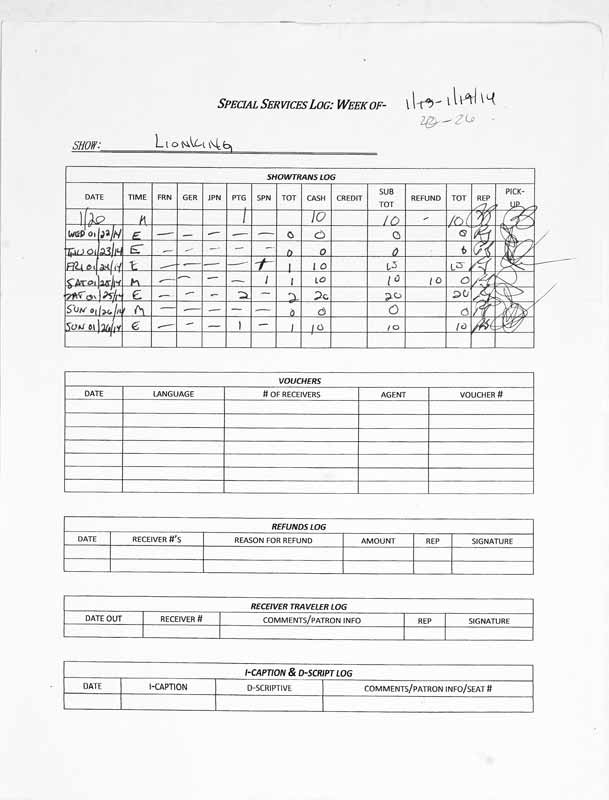 SPECIAL SERVICES LOG: WEEK OF- 1/13-1/19/14
-26
SHOW: LIONKING
SHOWTRANS LOG
DATE TIME FRN GER JPN PTG SPN TOT CASH CREDIT SUB TOT REFUND TOT REP PICK-UP
1/20 M 1 10 10 - 10
WED 01/22/14 E — — — — — 0 0 0 0
THU 01/23/14 E — — — — — 0 0 0 0
FRI 01/24/14 E — — — — 1 10
SAT 01/25/14 M — — — — 1 1 10 10 10 0
SAT 01/25/14 E — — — 2 — 2 20 20 20
SUN 01/26/14 M — — — — — 0 0 0 0
SUN 01/26/14 E — — — 1 — 1 10 10 10
VOUCHERS
DATE LANGUAGE # OF RECEIVERS AGENT VOUCHER #
REFUNDS LOG
DATE RECEIVER #'S REASON FOR REFUND AMOUNT REP SIGNATURE
RECEIVER TRAVELER LOG
DATE OUT RECEIVER # COMMENTS/PATRON INFO REP SIGNATURE
I-CAPTION & D-SCRIPT LOG
DATE I-CAPTION D-SCRIPTIVE COMMENTS/PATRON INFO/SEAT #